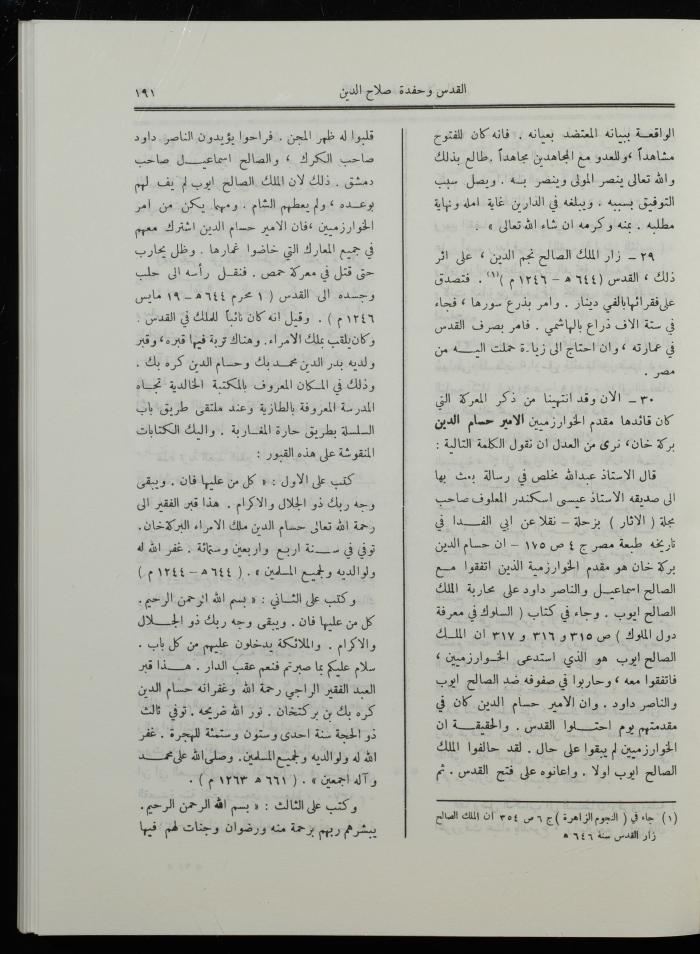 القدس وحفدة صلاح الدين
١٩١
الواقعة ببيانه المعتضد بعيانه . فانه كان للفتوح
مشاهداً ، وللعدو مع المجاهدين مجاهداً . طالع بذلك
والله تعالى ينصر المولى وينصر به . ويصل سبب
التوفيق بسببه . ويبلغه في الدارين غاية امله ونهاية
مطلبه . بمنه وكرمه ان شاء الله تعالى » .
٢٩ – زار الملك الصالح نجم الدين ، على اثر
ذلك ، القدس (٦٤٤ هـ – ١٢٤٦ م )(١) . فتصدق
على فقرائها بالفي دينار . وامر بذرع سورها ، فجاء
في ستة الاف ذراع بالهاشمي . فامر بصرف القدس
في عمارته ، وان احتاج الى زيادة حملت اليه من
مصر .
٣٠ – الآن وقد انتهينا من ذكر المعركة التي
كان قائدها مقدم الخوارزميين الامير حسام الدين
بركة خان، نرى من العدل ان نقول الكلمة التالية :
قال الاستاذ عبدالله مخلص في رسالة بعث بها
الى صديقه الاستاذ عيسى اسكندر المعلوف صاحب
مجلة ( الآثار ) بزحلة – نقلا عن ابي الفدا في
تاريخه طبعة مصر ج ٤ ص ١٧٥ – ان حسام الدين
بركة خان هو مقدم الخوارزمية الذين اتفقوا مع
الصالح اسماعيل والناصر داود على محاربة الملك
الصالح ايوب . وجاء في كتاب ( السلوك في معرفة
دول الملوك ) ص ٣١٥ و ٣١٦ و ٣١٧ ان الملك
الصالح ايوب هو الذي استدعى الخوارزميين ،
فاتفقوا معه ، وحاربوا في صفوفه ضد الصالح ايوب
والناصر داود . وان الامير حسام الدين كان في
مقدمتهم يوم احتلوا القدس . والحقيقة ان
الخوارزميين لم يبقوا على حال . لقد حالفوا الملك
الصالح ايوب اولا . واعانوه على فتح القدس . ثم
(١) جاء في ( النجوم الزاهرة ) ج ٦ ص ٣٥٤ ان الملك الصالح
زار القدس سنة ٦٤٦ هـ
قلبوا له ظهر المجن . فراحوا يؤيدون الناصر داود
صاحب الكرك ، والصالح اسماعيل صاحب
دمشق . ذلك لان الملك الصالح ايوب لم يف لهم
بوعده ، ولم يعطهم الشام . ومهما يكن من امر
الخوارزميين ، فان الامير حسام الدين اشترك معهم
في جميع المعارك التي خاضوا غمارها . وظل يحارب
حتى قتل في معركة حمص . فنقل رأسه الى حلب
وجسده الى القدس ( ١ محرم ٦٤٤ هـ – ١٩ مايس
١٢٤٦ م ) . وقيل انه كان نائباً للملك في القدس .
وكان يلقب بملك الامراء. وهناك تربة فيها قبره، وقبر
ولديه بدر الدين محمد بك وحسام الدين كره بك .
وذلك في المكان المعروف بالمكتبة الخالدية تجاه
المدرسة المعروفة بالطازية وعند ملتقى طريق باب
السلسلة بطريق حارة المغاربة . واليك الكتابات
المنقوشة على هذه القبور :
كتب على الاول : « كل من عليها فان . ويبقى
وجه ربك ذو الجلال والاكرام . هذا قبر الفقير الى
رحمة الله تعالى حسام الدين ملك الامراء البركة خان.
توفي في سنة اربع واربعين وستمائة . غفر الله له
ولوالديه ولجميع المسلمين » . ( ٦٤٤ هـ – ١٢٤٤ م )
وكتب على الثاني : « بسم الله الرحمن الرحيم.
كل من عليها فان . ويبقى وجه ربك ذو الجلال
والاكرام . والملائكة يدخلون عليهم من كل باب .
سلام عليكم بما صبرتم فنعم عقب الدار . هذا قبر
العبد الفقير الراجي رحمة الله وغفرانه حسام الدين
كره بك بن بركتخان . نور الله ضريحه . توفي ثالث
ذو الحجة سنة احدى وستون وستمئة للهجرة . غفر
الله له ولوالديه ولجميع المسلمين. وصلى الله على محمد
وآله اجمعين » . ( ٦٦١ هـ ١٢٦٣ م ) .
وكتب على الثالث : « بسم الله الرحمن الرحيم.
يبشرهم ربهم برحمة منه ورضوان وجنات لهم فيها